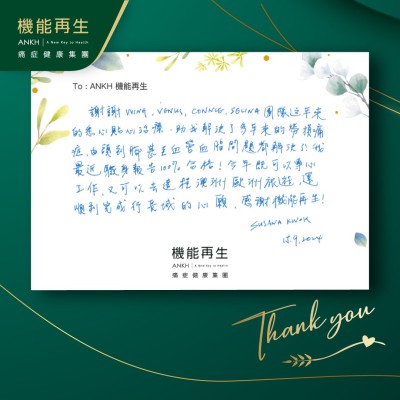 機能再生
ANKH | A New Key to Health
痛症健康集團
To : ANKH 機能再生
謝謝 WING, VENUS, CONNIE, SELINA 團隊這年來
的悉心貼心治療,助我解決了多年來的勞損痛
症,由頭到腳甚至血管血脂問題都解決了,我
最近驗身報告100%合格!今年既可以專心
工作,又可以去達程澳洲歐洲旅遊,還
順利完成行長城的心願,感謝機能再生!
SUSANA KWOK
15.9.2024
機能再生
ANKH | A New Key to Health
痛症健康集團
Thank you